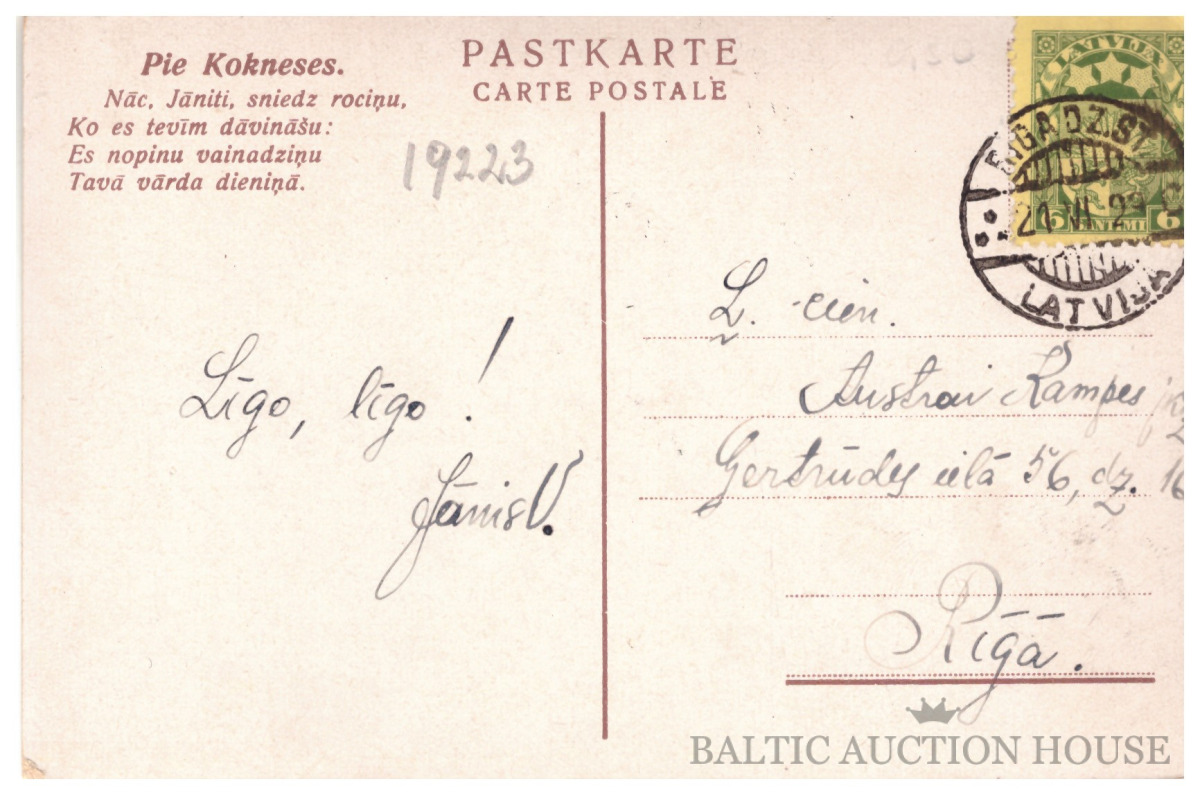 Pie Kokneses.
Nāc, Jāniti, sniedz rociņu,
Ko es tevīm dāvināšu:
Es nopinu vainadziņu
Tavā vārda dieniņā.
PASTKARTE
CARTE POSTALE
19223
LATVIJA
6 SANTIMI 6
RIGA DZ.ST
21 VI 29
LATVIJA
Līgo, līgo!
Jānis V.
L. cien.
Austrai Kampes
Gertrūdes ielā 56, dz. 16
Rīgā.
BALTIC AUCTION HOUSE